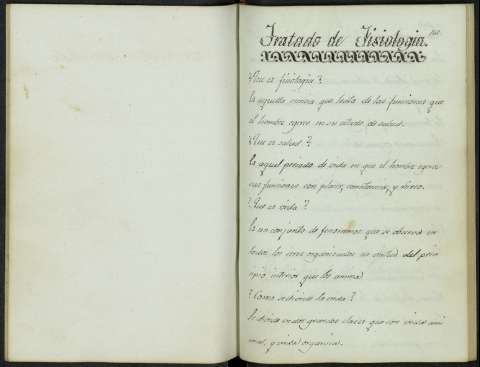 Tratado de Fisiologia.
¿Que es fisiologia?
Es aquella ciencia que trata de las funciones que
el hombre egerce en su estado de salud.
¿Que es salud?
Es aquel periodo de vida en que el hombre egerce
sus funciones con placer, constancia, y
¿Que es vida?
Es un conjunto de fenomenos que se observa en
todos los seres organizados en virtud del prin-
cipio interior que los anima.
¿Como se divide la vida?
Se divide en dos grandes clases que son vida ani-
mal, y vida organica.